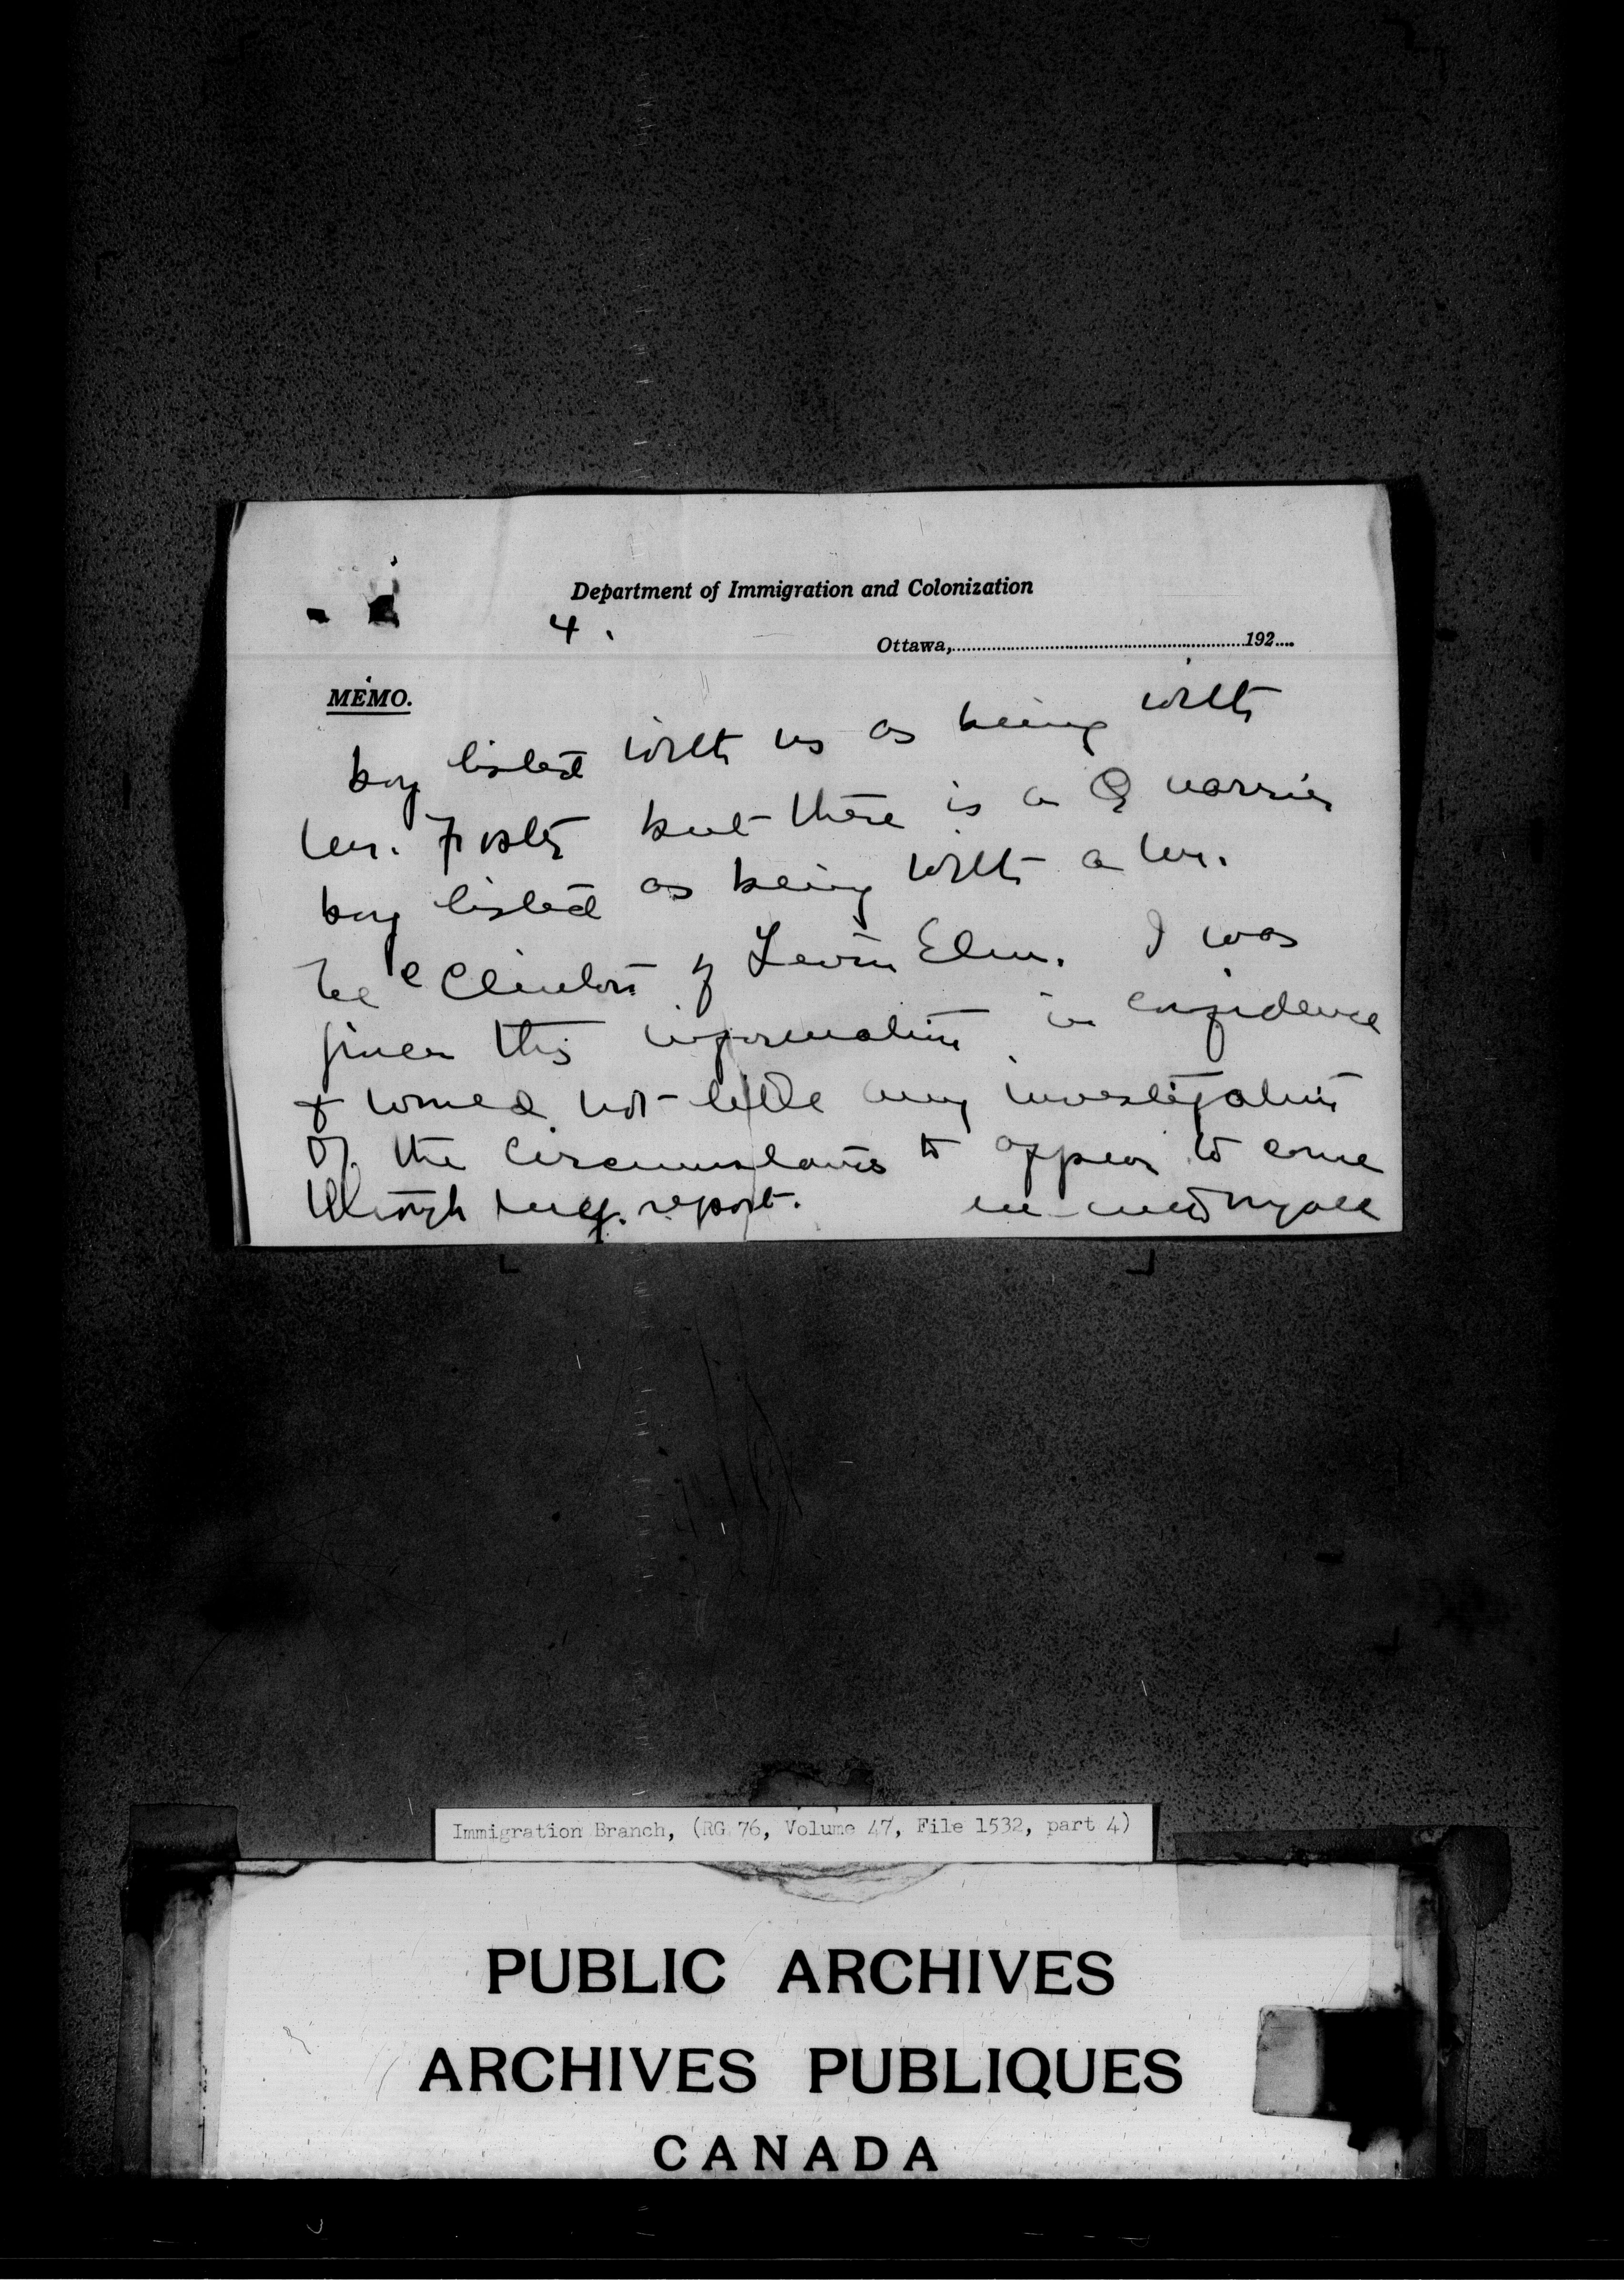 Department of Immigration and Colonization
4.
Ottawa,..........192....
MEMO.
boy listed with us as being with
Mr. Foster but there is a Quarrier
boy listed as being with a Mr.
McClintock of Lewin Elm. I was
given this information in confidence
& would not like any investigation
of the circumstances to appear to come
through my report.
Immigration Branch, (RG 76, Volume 47, File 1532, part 4)
PUBLIC ARCHIVES
ARCHIVES PUBLIQUES
CANADA